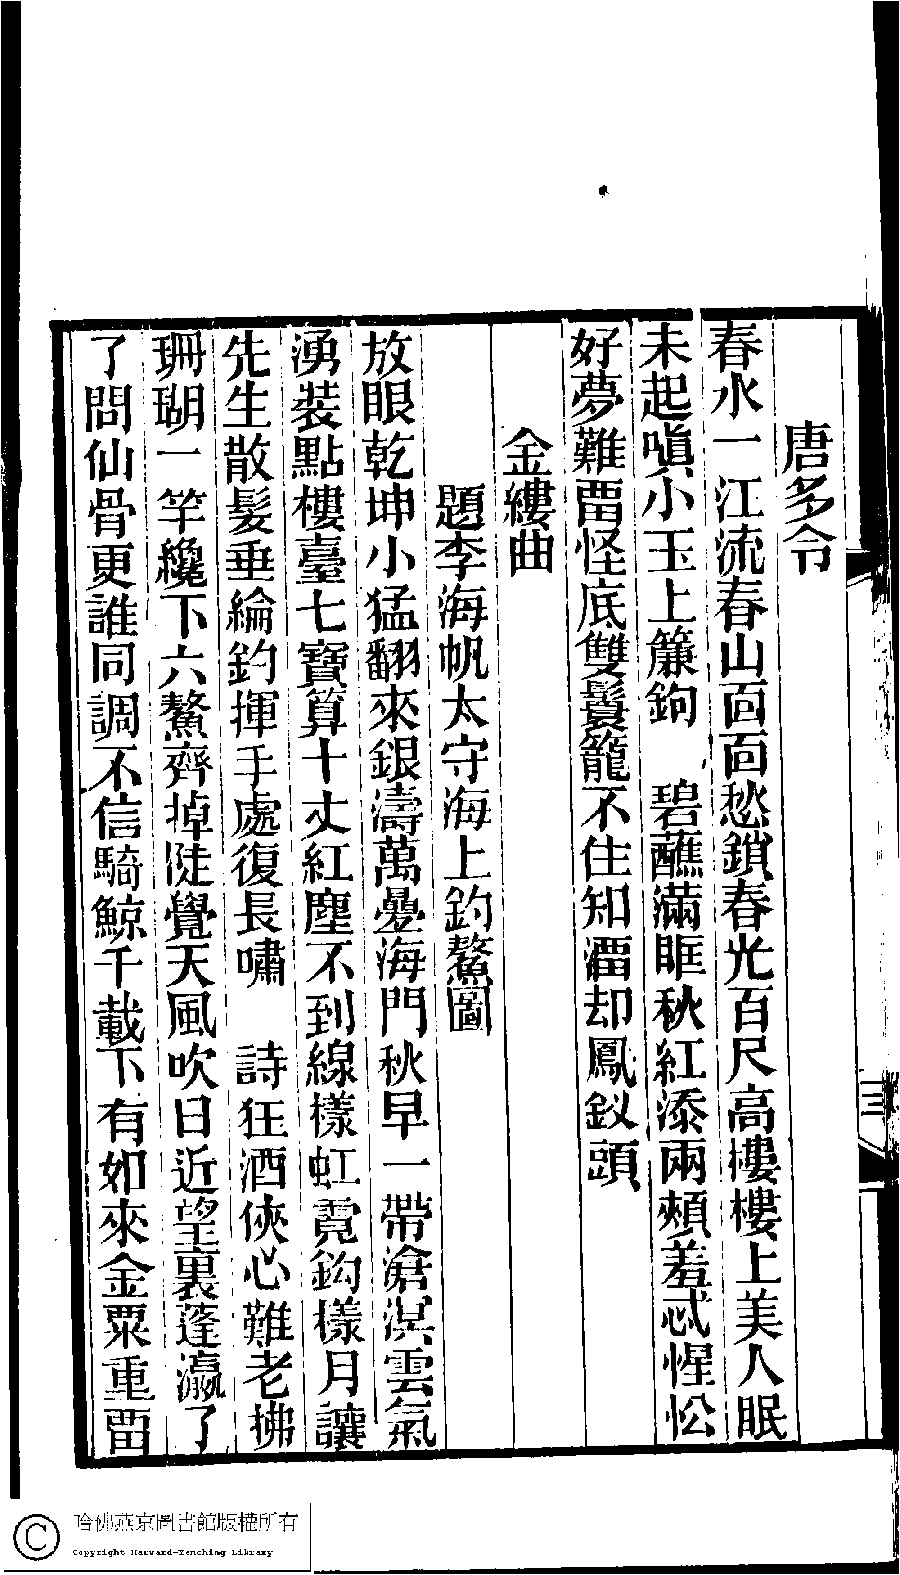 唐多令
春水一江流春山面面愁鎖春光百尺高樓樓上美人眠
未起嗔小玉上簾鉤　碧蘸滿眶秋紅添兩頰羞忒惺忪
好夢難畱怪底雙鬟籠不住知溜却鳳釵頭
金縷曲
題李海帆太守海上釣鰲圖
放眼乾坤小猛翻來銀濤萬疊海門秋早一帶滄溟雲氣
湧裝點樓臺七寶算十丈紅塵不到線樣虹霓鈎樣月讓
先生散髮垂綸釣揮手處復長嘯　詩狂酒俠心難老拂
珊瑚一竿纔下六鰲齊掉陡覺天風吹日近望裏蓬瀛了
了問仙骨更誰同調不信騎鯨千載下有如來金粟重畱
三
哈佛燕京圖書館版權所有
Copyright Harvard-Yenching Library